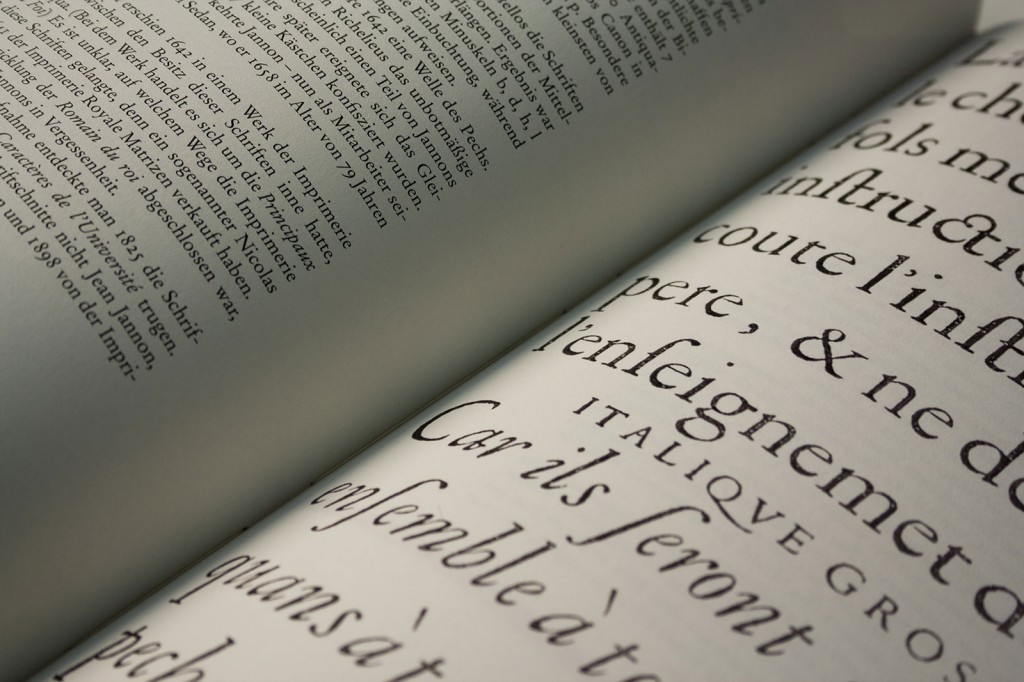 enthält 7
Antiqua-
Canon in
P. Besondere
kleinsten von
die Schriften
der Mittel-
Ergebnis war
Minuskeln b, d, h, l
Einbuchtung, während
aufweisen.
1642 eine Welle des Pechs.
Richelieus das unbotmäßige
einen Teil von Jannons
später ereignete, sich, das Glei-
kleine Kästchen konfisziert wurden.
kehrte Jannon nun als Mitarbeiter sei-
Sedan, wo er 1658 im Alter von 79 Jahren
erschien 1642 in einem Werk der Imprimerie
den Besitz dieser Schriften inne hatte,
(Bei dem Werk handelt es sich um die Principaux
Fol.) Es ist unklar, auf welchem Wege die Imprimerie
Schriften gelangte, denn ein sogenannter Nicolas
der Imprimerie Royale Matrizen verkauft haben.
der Romain du roi abgeschlossen war,
in Vergessenheit.
entdeckte man 1825 die Schrif-
Caractères de l'Université trugen.
nicht Jean Jannon,
und 1898 von der Impri-
La
le che
fols me
inſtructio
coute l'inſt
pere, & ne de
l'enſeignement d
ITALIQVE GROS
Car ils ſeront
enſemble à t
quans à t
pech